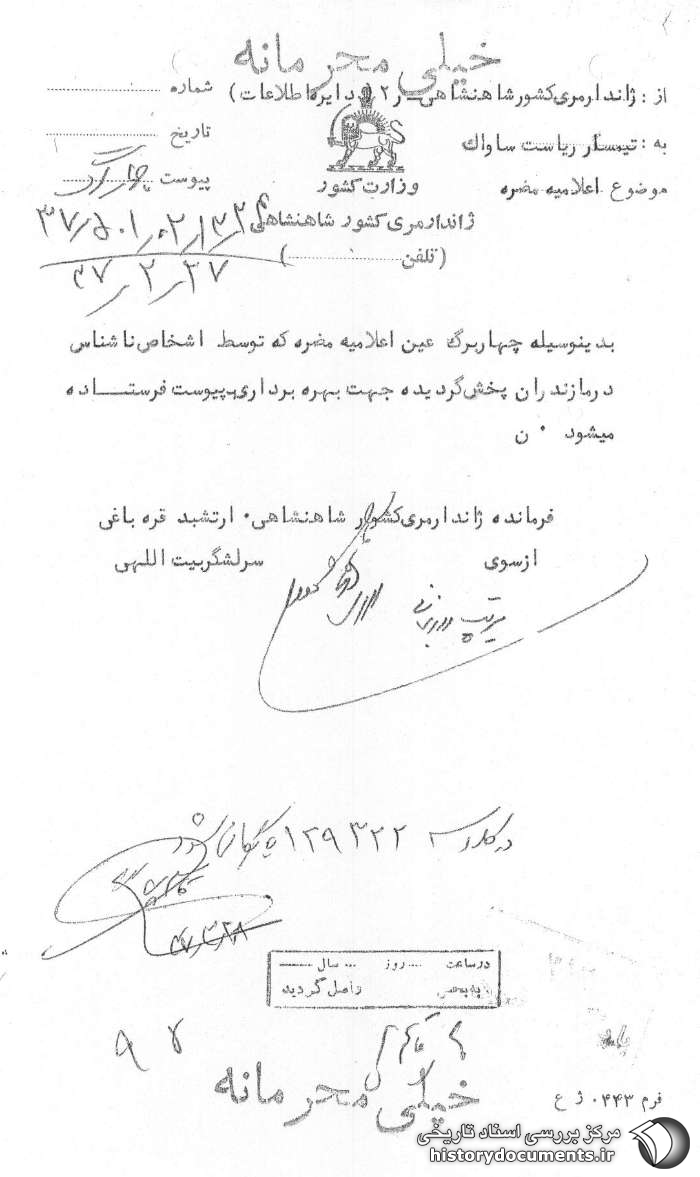 خیلی محرمانه
از : ژاندارمری کشور شاهنشاهی ـ ر۲ (دایره اطلاعات)
شماره
به : تیمسار ریاست ساواک
تاریخ
موضوع اعلامیه مضره
پیوست چهار برگ
وزارت کشور
ژاندارمری کشور شاهنشاهی
(تلفن )
۳۷/۲/۲۷
بدینوسیله چهاربرگ عین اعلامیه مضره که توسط اشخاص ناشناس
درمازندران پخش گردیده جهت بهره برداری بپیوست فرستاده
میشود ۰ ن
فرمانده ژاندارمری کشور شاهنشاهی ۰ ارتشبد قره باغی
ازسوی سرلشگربیت اللهی
در کلاسه ۱۲۹۳۲۲ بایگانی شود
درساعت .... روز ... سال
واصل گردید
خیلی محرمانه
فرم ۰۴۴۳ ژ ع
مرکز بررسی اسناد تاریخی
historydocuments.ir